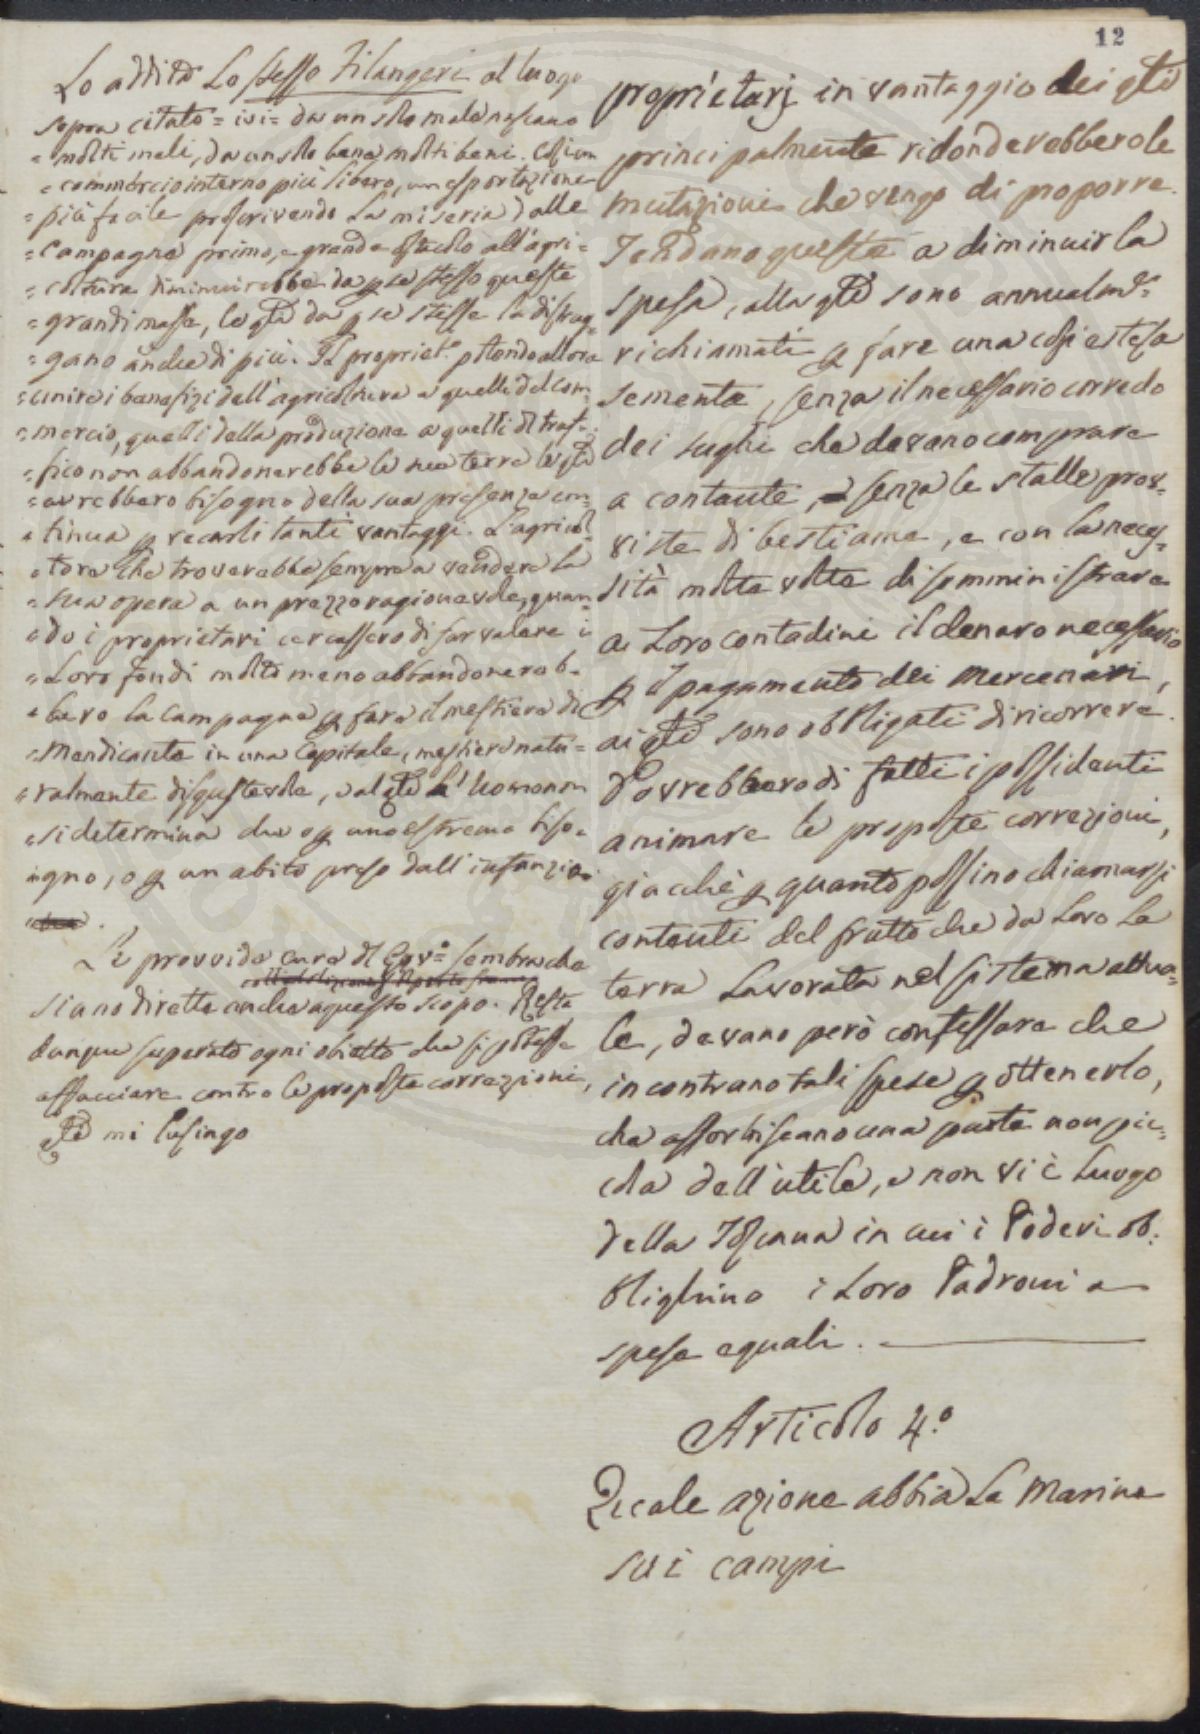 12
Lo addita Lo stesso Filangeri al luogo
sopra citato = ivi = da un solo male nascano
= molti mali, da un solo bene molti beni. Così un
= commercio interno più libero, un esportazione
= più facile proscrivendo La miseria dalle
= Campagne primo, e grande ostacolo all'agri=
= coltura diminuirebbe da p se stesso queste
= grandi masse, le qli da p se stesse si distrug=
= gano anche di più. Il propriet.o potendo allora
= unire i benefizi dell'agricoltura a quelli del com=
= mercio, quelli della produzione a quelli di traf=
= fico non abbandonerebbe le sue terre le qli
= avrebbero bisogno della sua presenza con=
= tinua p recarli tanti vantaggi. L'agricol=
= tore che troverebbe sempre a vendere la
= sua opera a un prezzo ragionevole, quan=
= do i proprietari cercassero di far valere i
= Loro fondi molto meno abbandonereb=
= bero la campagna p fare il mestiere di
= Mendicante in una Capitale, mestiere natu=
= ralmente disgustevole, al qle L'Uomo non
= si determina che o p uno estremo biso=
= gno, o p un abito preso dall'infanzia
Le provvide cure del Gov.o sembra che
siano dirette anche a questo scopo. Resta
dunque superato ogni obietto che si potesse
affacciare contro le proposte correzioni,
qli mi Lusingo
proprietarj in vantaggio dei qli
principalmente ridonderebbero le
mutazioni che vengo di proporre.
Tendano queste a diminuir la
spesa, alla qle sono annualm.e
richiamati p fare una così estesa
sementa, senza il necessario corredo
dei sughi che devano comprare
a contante, senza le stalle prov=
viste di bestiame, e con la neces=
sità molte volte di somministrare
ai Loro contadini il denaro necessario
p il pagamento dei Mercenari,
ai qli sono obbligati di ricorrere.
Dovrebbero di fatti i possidenti
animare le proposte correzioni,
giacchè p quanto possino chiamarsi
contenti del frutto che da Loro La
terra Lavorata nel sistema attua=
le, devano però confessare che
incontrano tali spese p ottenerlo,
che assorbiscano una parte non pic=
cola dell'utile, e non vi è Luogo
della Toscana in cui i Poderi ob=
blighino i Loro Padroni a
spese eguali.
Articolo 4.o
Quale azione abbia La Marina
sui campi